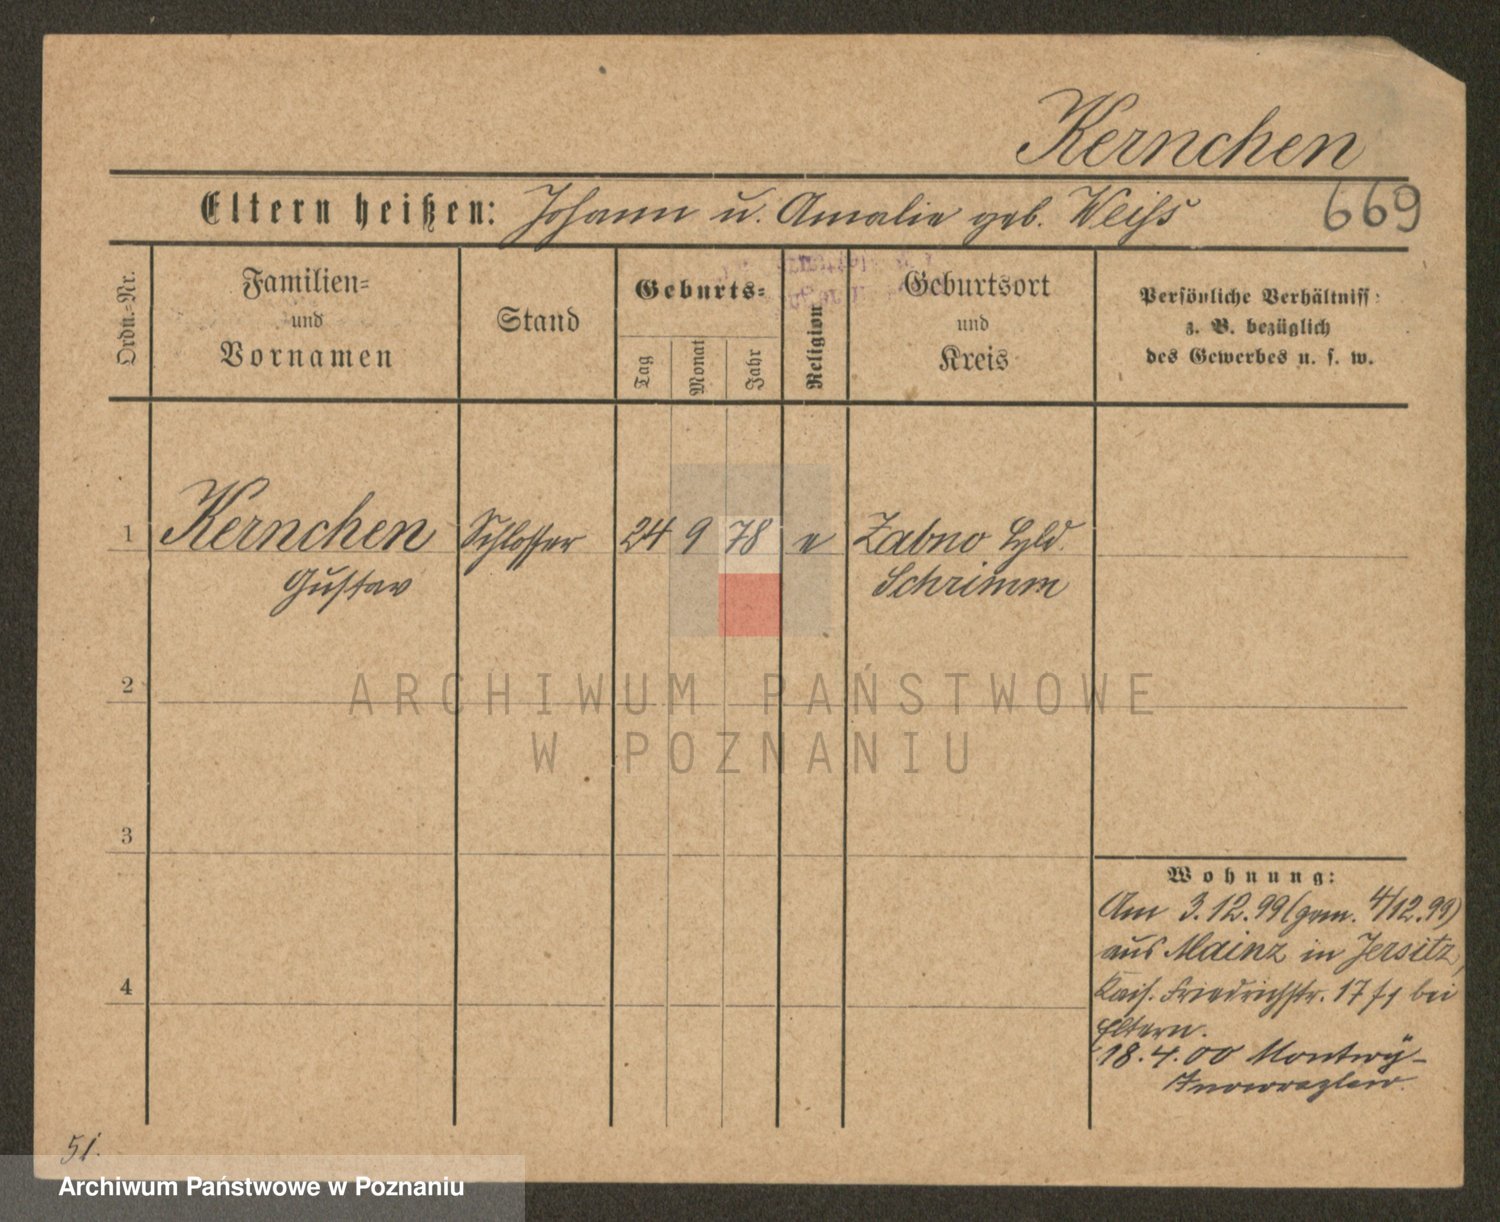 Kernchen
Eltern heißen: Johann u. Amalie geb. Weiss
669
Ordn.-Nr.
Familien-
und
Vornamen
Stand
Geburts-
Tag
Monat
Jahr
Religion
Geburtsort
und
Kreis
Persönliche Verhältniss
z. B. bezüglich
des Gewerbes u. s. w.
1 Kernchen Schlosser 24 9 78 e Zabno
Gustav Schrimm
2
ARCHIWUM PAŃSTWOWE
W POZNANIU
3
4
Wohnung:
Am 3.12.99 (gem. 4/12.99)
aus Mainz in Jersitz,
Kais. Friedrichstr. 17 bei
Eltern.
18.4.00 Montwy-
Inowrazlaw.
51.
Archiwum Państwowe w Poznaniu